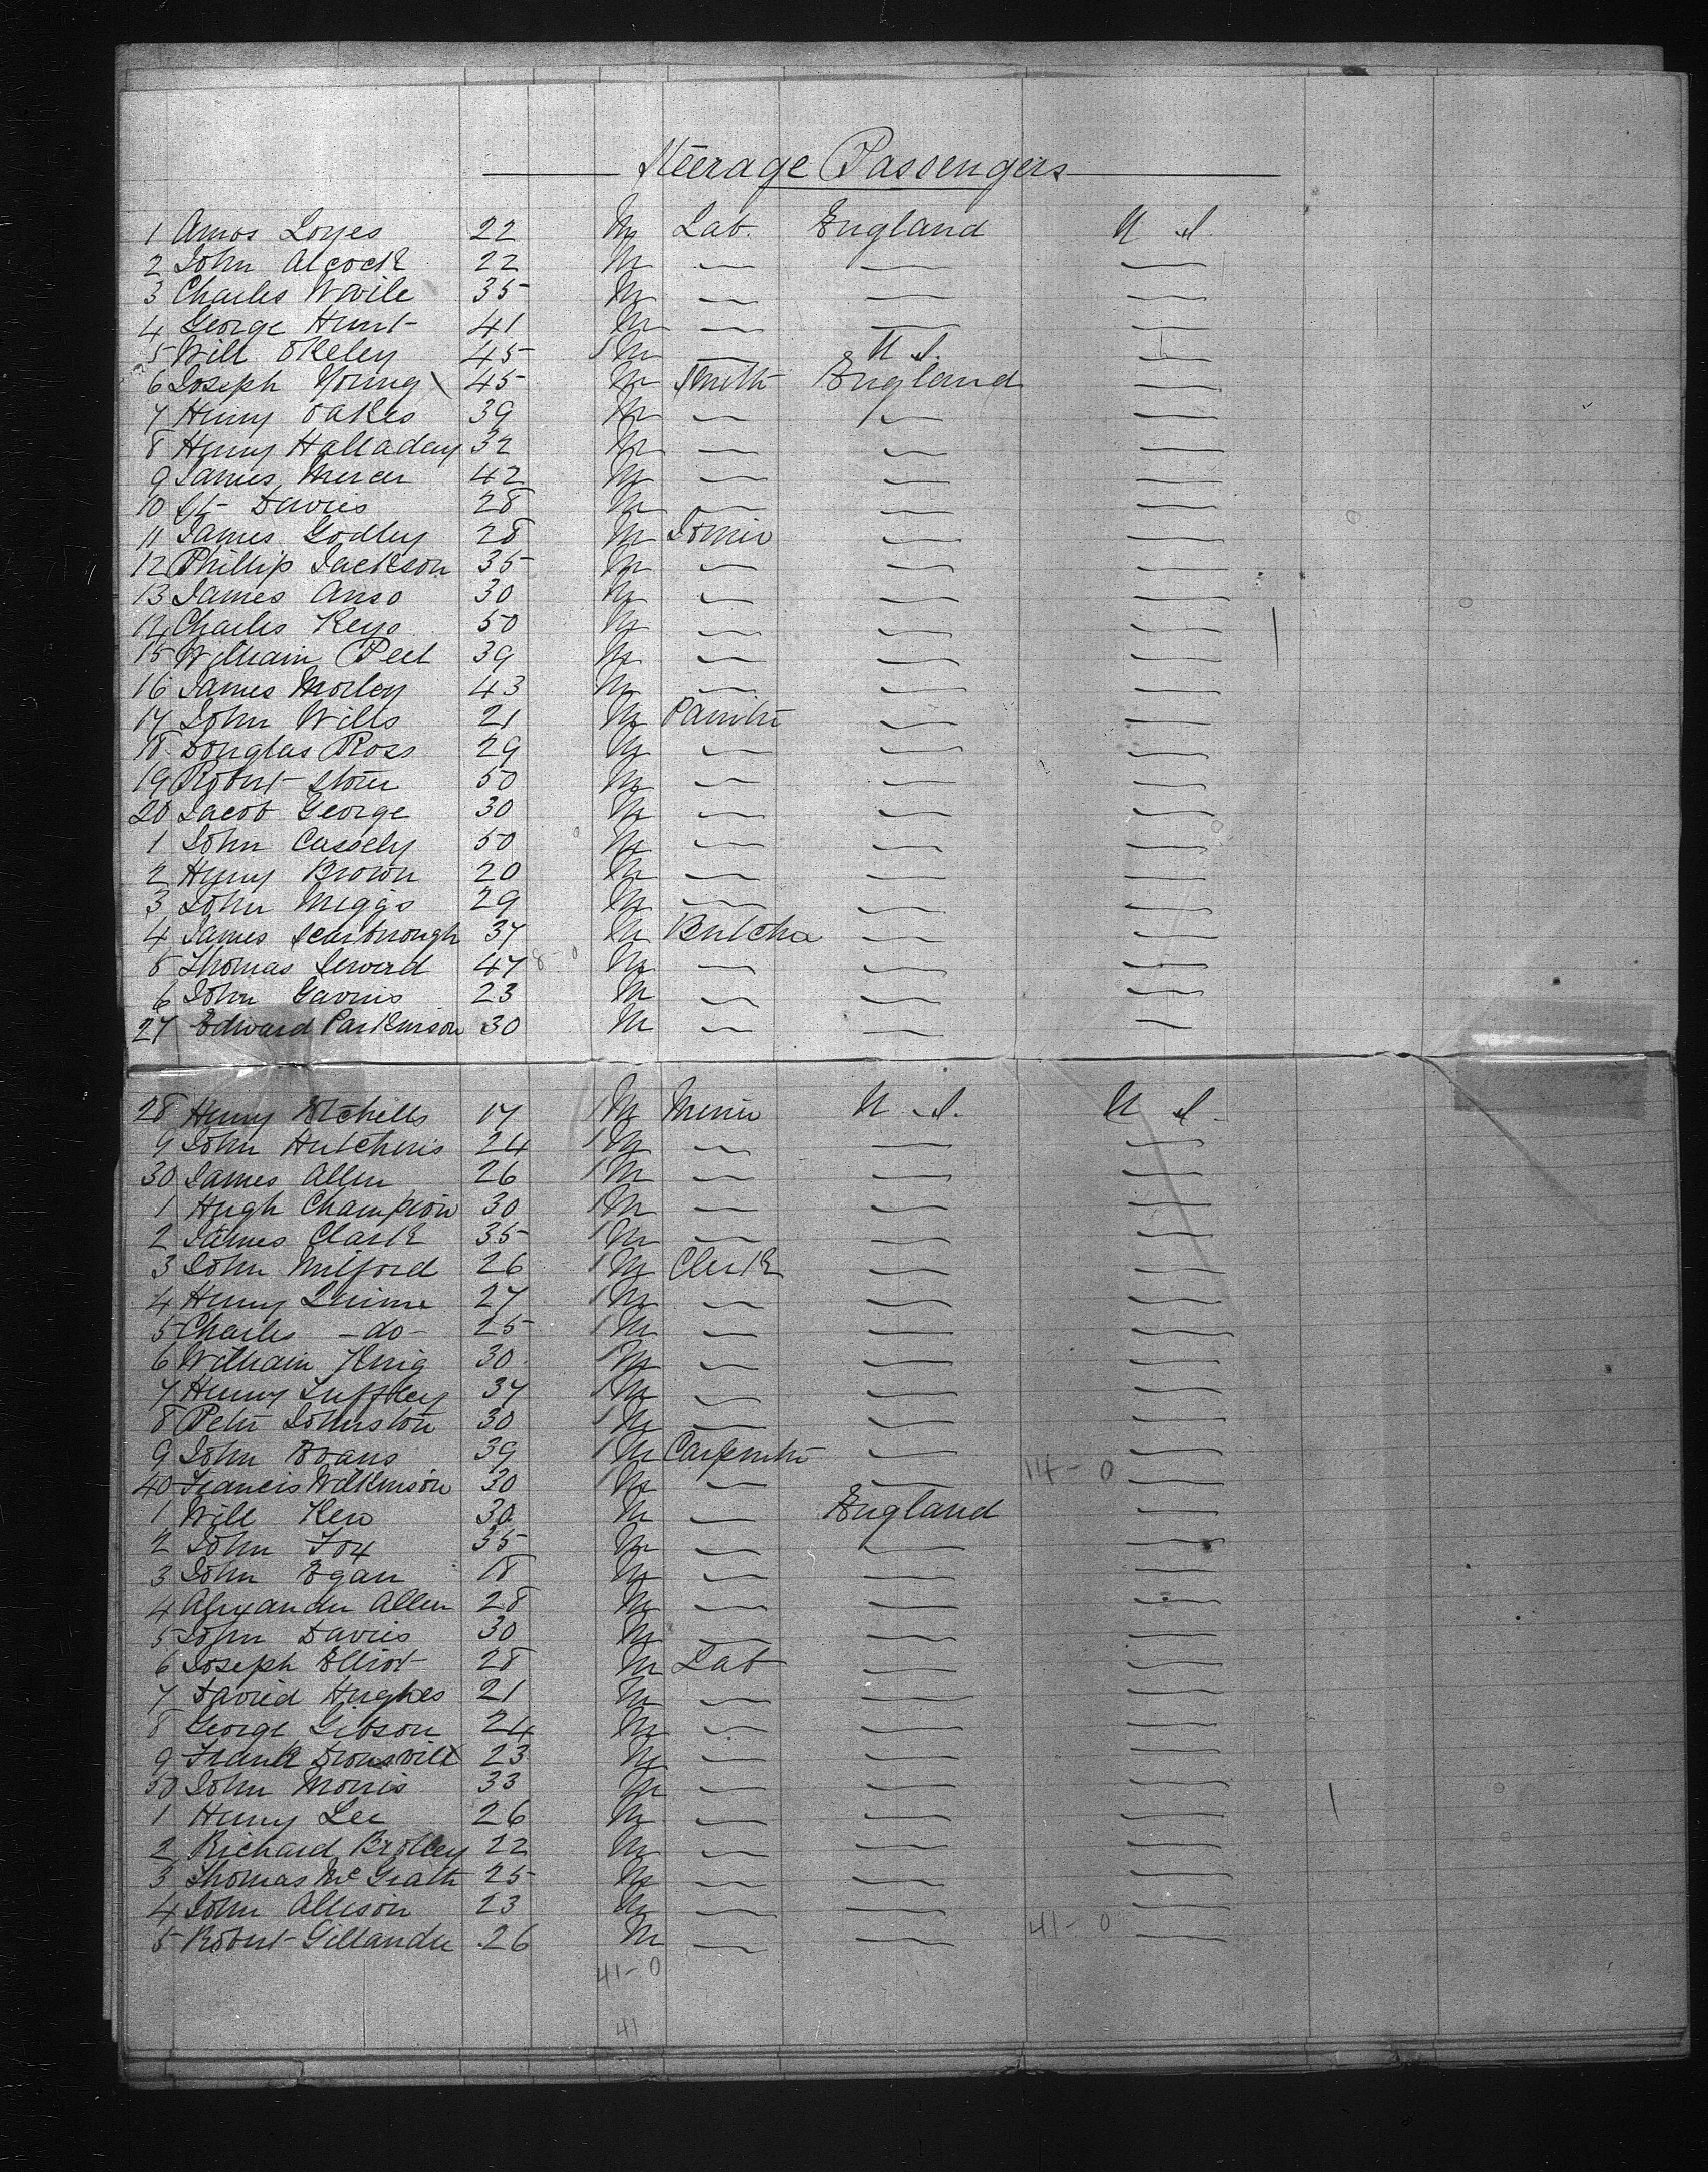 Steerage Passengers
1 Amos Loyes 22 M Lab. England U S.
2 John Alcock 22 M — — —
3 Charles 35 M — — —
4 George Hunt 41 M — — —
5 Will Okeley 45 1 M — U S. —
6 Joseph Young 45 M Smith England —
7 Henry Oakes 39 M — — —
8 Henry Halladay 32 M — — —
9 James Mercer 42 M — — —
10 Davies 28 M — — —
11 James Godley 28 M Joiner — —
12 Phillip Jackson 35 M — — —
13 James Anso 30 M — — —
14 Charles Keys 50 M — — —
15 William Peel 39 M — — —
16 James Morley 43 M — — —
17 John Wills 21 M Painter — —
18 Douglas Ross 29 M — — —
19 Robert 50 M — — —
20 Jacob George 30 M — — —
1 John Cassely 50 M — — —
2 Henry Brown 20 M — — —
3 John Meggs 29 M — — —
4 James Scarbrough 37 M Butcher — —
5 Thomas Seward 47 8-0 M — — —
6 John 23 M — — —
27 Edward Parkinson 30 M — — —
28 Henry Etchills 17 1 M Miner U S. U S.
9 John Hutchins 24 1 M — — —
30 James Allen 26 1 M — — —
1 Hugh Champion 30 1 M — — —
2 James Clark 35 1 M — — —
3 John Milford 26 1 M Clerk — —
4 Henry 27 1 M — — —
5 Charles -do- 25 1 M — — —
6 William King 30 1 M — — —
7 Henry Tuffley 37 1 M — — —
8 Peter Johnston 30 1 M — — —
9 John Evans 39 1 M Carpenter — —
40 Francis Wilkinson 30 1 M — — 14-0 —
1 Will Kew 30 M — England —
2 John Fox 35 M — — —
3 John Egan 18 M — — —
4 Alexander Allen 28 M — — —
5 John Davies 30 M — — —
6 Joseph Elliot 28 M Lab — —
7 David Hughes 21 M — — —
8 George Gibson 24 M — — —
9 Frank 23 M — — —
50 John Morris 33 M — — —
1 Henry Lee 26 M — — —
2 Richard Brolley 22 M — — —
3 Thomas McGrath 25 M — — —
4 John Allison 23 M — — —
5 Robert Gillander 26 M — — 41-0 —
41-0
41